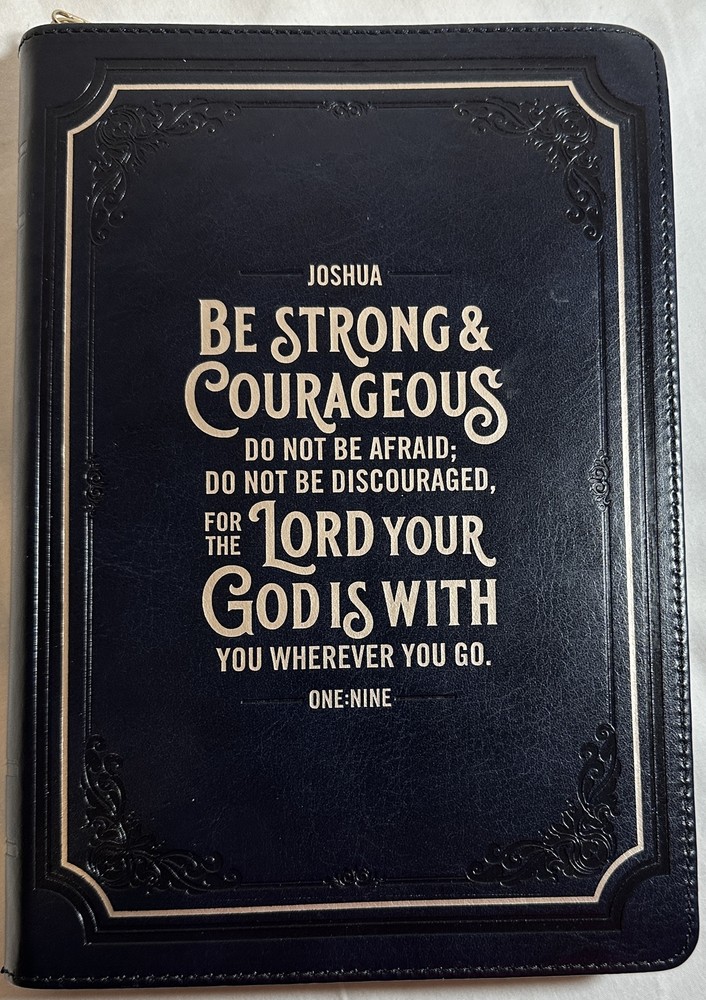 JOSHUA
BE STRONG &
COURAGEOUS
DO NOT BE AFRAID;
DO NOT BE DISCOURAGED,
FOR THE LORD YOUR
GOD IS WITH
YOU WHEREVER YOU GO.
ONE:NINE